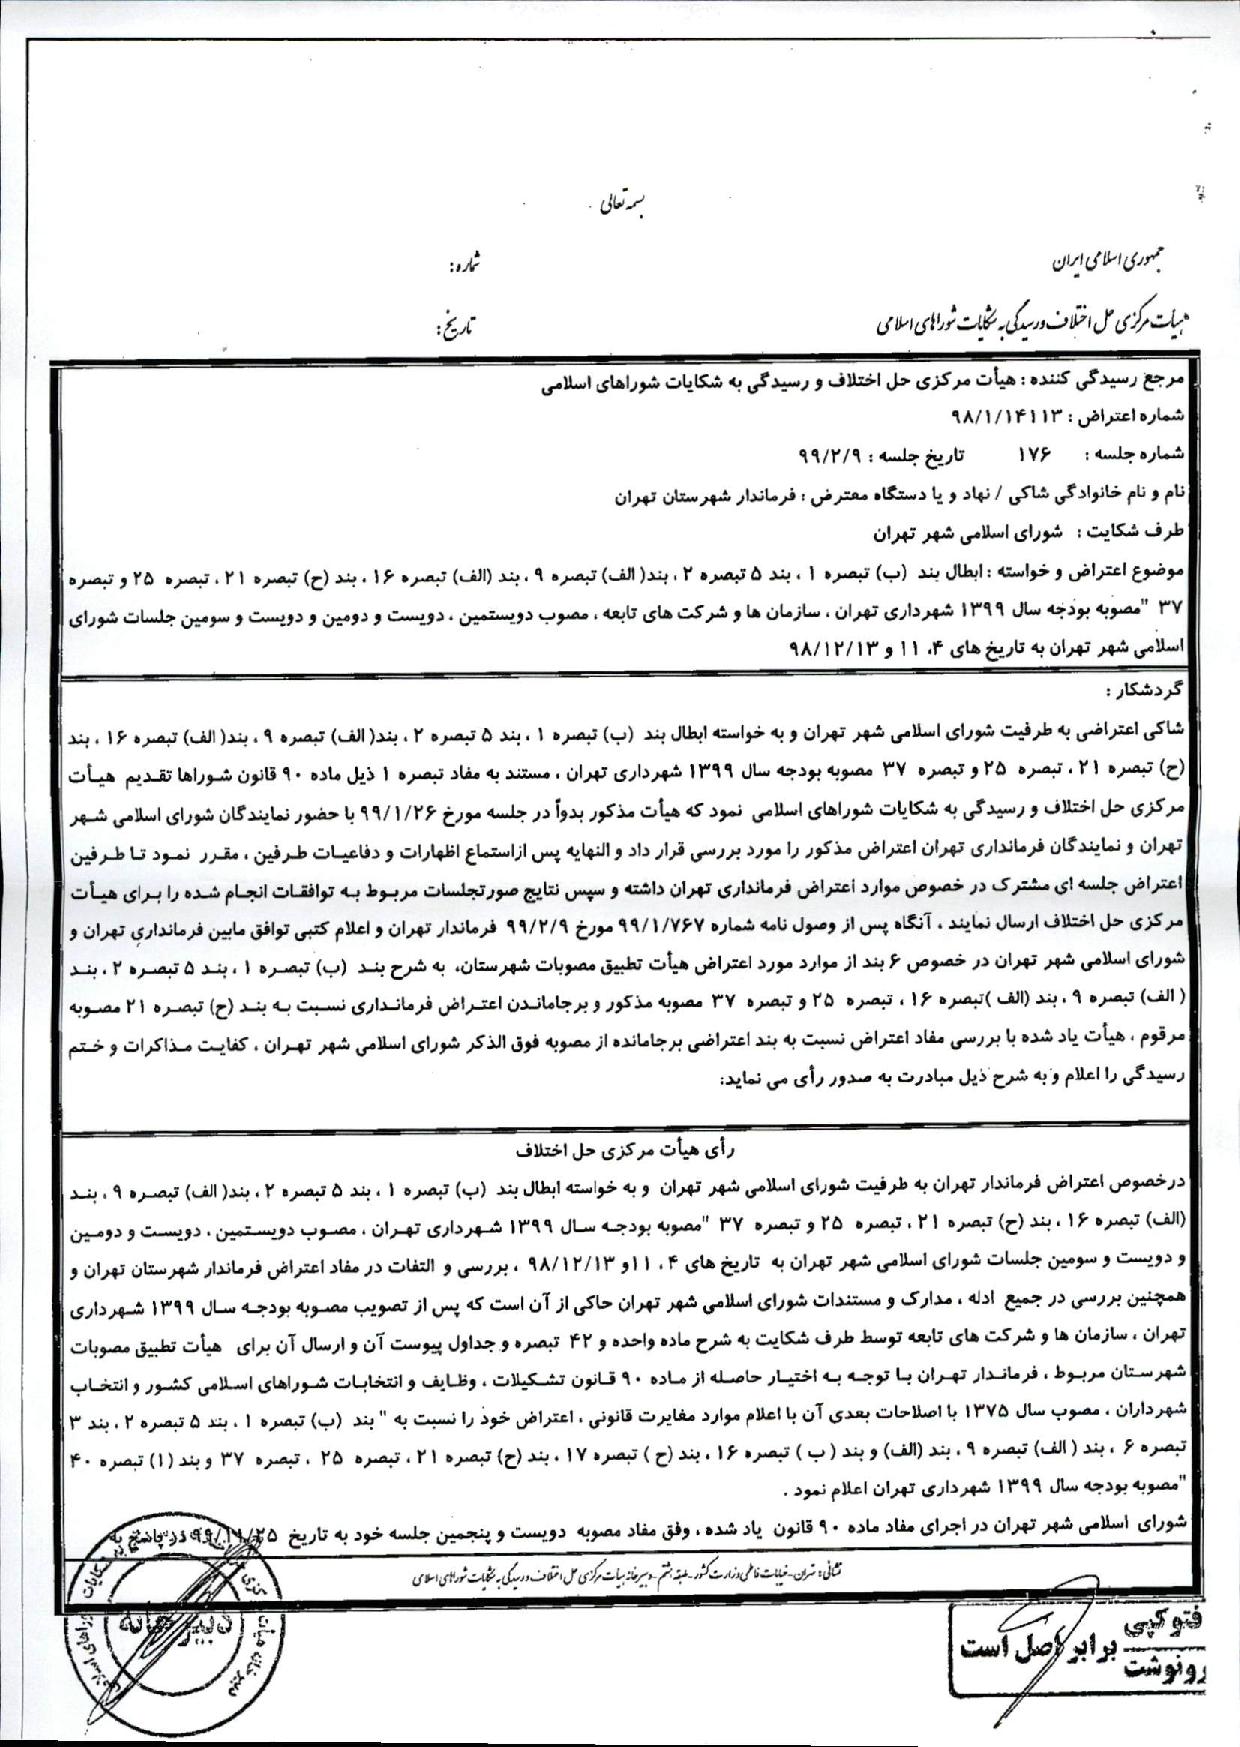 بسمه تعالی
جمهوری اسلامی ایران
شماره:
هیأت مرکزی حل اختلاف و رسیدگی به شکایات شوراهای اسلامی
تاریخ:
مرجع رسیدگی کننده : هیأت مرکزی حل اختلاف و رسیدگی به شکایات شوراهای اسلامی
شماره اعتراض : ۹۸/۱/۱۴۱۱۳
شماره جلسه : ۱۷۶ تاریخ جلسه : ۹۹/۲/۹
نام و نام خانوادگی شاکی / نهاد و یا دستگاه معترض : فرماندار شهرستان تهران
طرف شکایت : شورای اسلامی شهر تهران
موضوع اعتراض و خواسته : ابطال بند (ب) تبصره ۱ ، بند ۵ تبصره ۲ ، بند( الف) تبصره ۹ ، بند (الف) تبصره ۱۶ ، بند (ح) تبصره ۲۱ ، تبصره ۲۵ و تبصره
۳۷ "مصوبه بودجه سال ۱۳۹۹ شهرداری تهران ، سازمان ها و شرکت های تابعه ، مصوب دویستمین ، دویست و دومین و دویست و سومین جلسات شورای
اسلامی شهر تهران به تاریخ های ۴، ۱۱ و ۹۸/۱۲/۱۳
گردشکار :
شاکی اعتراضی به طرفیت شورای اسلامی شهر تهران و به خواسته ابطال بند (ب) تبصره ۱ ، بند ۵ تبصره ۲ ، بند( الف) تبصره ۹ ، بند( الف) تبصره ۱۶ ، بند
(ح) تبصره ۲۱ ، تبصره ۲۵ و تبصره ۳۷ مصوبه بودجه سال ۱۳۹۹ شهرداری تهران ، مستند به مفاد تبصره ۱ ذیل ماده ۹۰ قانون شوراها تقدیم هیأت
مرکزی حل اختلاف و رسیدگی به شکایات شوراهای اسلامی نمود که هیأت مذکور بدواً در جلسه مورخ ۹۹/۱/۲۶ با حضور نمایندگان شورای اسلامی شهر
تهران و نمایندگان فرمانداری تهران اعتراض مذکور را مورد بررسی قرار داد و النهایه پس ازاستماع اظهارات و دفاعیات طرفین ، مقرر نمود تا طرفین
اعتراض جلسه ای مشترک در خصوص موارد اعتراض فرمانداری تهران داشته و سپس نتایج صورتجلسات مربوط به توافقات انجام شده را برای هیأت
مرکزی حل اختلاف ارسال نمایند ، آنگاه پس از وصول نامه شماره ۹۹/۱/۷۶۷ مورخ ۹۹/۲/۹ فرماندار تهران و اعلام کتبی توافق مابین فرمانداری تهران و
شورای اسلامی شهر تهران در خصوص ۶ بند از موارد مورد اعتراض هیأت تطبیق مصوبات شهرستان، به شرح بند (ب) تبصره ۱ ، بند ۵ تبصره ۲ ، بند
( الف) تبصره ۹ ، بند (الف )تبصره ۱۶ ، تبصره ۲۵ و تبصره ۳۷ مصوبه مذکور و برجاماندن اعتراض فرمانداری نسبت به بند (ح) تبصره ۲۱ مصوبه
مرقوم ، هیأت یاد شده با بررسی مفاد اعتراض نسبت به بند اعتراضی برجامانده از مصوبه فوق الذکر شورای اسلامی شهر تهران ، کفایت مذاکرات و ختم
رسیدگی را اعلام و به شرح ذیل مبادرت به صدور رأی می نماید:
رأی هیأت مرکزی حل اختلاف
درخصوص اعتراض فرماندار تهران به طرفیت شورای اسلامی شهر تهران و به خواسته ابطال بند (ب) تبصره ۱ ، بند ۵ تبصره ۲ ، بند( الف) تبصره ۹ ، بند
(الف) تبصره ۱۶ ، بند (ح) تبصره ۲۱ ، تبصره ۲۵ و تبصره ۳۷ "مصوبه بودجه سال ۱۳۹۹ شهرداری تهران ، مصوب دویستمین ، دویست و دومین
و دویست و سومین جلسات شورای اسلامی شهر تهران به تاریخ های ۴ ، ۱۱و ۹۸/۱۲/۱۳ ، بررسی و التفات در مفاد اعتراض فرماندار شهرستان تهران و
همچنین بررسی در جمیع ادله ، مدارک و مستندات شورای اسلامی شهر تهران حاکی از آن است که پس از تصویب مصوبه بودجه سال ۱۳۹۹ شهرداری
تهران ، سازمان ها و شرکت های تابعه توسط طرف شکایت به شرح ماده واحده و ۴۲ تبصره و جداول پیوست آن و ارسال آن برای هیأت تطبیق مصوبات
شهرستان مربوط ، فرماندار تهران با توجه به اختیار حاصله از ماده ۹۰ قانون تشکیلات ، وظایف و انتخابات شوراهای اسلامی کشور و انتخاب
شهرداران ، مصوب سال ۱۳۷۵ با اصلاحات بعدی آن با اعلام موارد مغایرت قانونی ، اعتراض خود را نسبت به " بند (ب) تبصره ۱ ، بند ۵ تبصره ۲ ، بند ۳
تبصره ۶ ، بند ( الف) تبصره ۹ ، بند (الف) و بند ( ب ) تبصره ۱۶ ، بند (ح ) تبصره ۱۷ ، بند (ح) تبصره ۲۱ ، تبصره ۲۵ ، تبصره ۳۷ و بند (۱) تبصره ۴۰
"مصوبه بودجه سال ۱۳۹۹ شهرداری تهران اعلام نمود .
شورای اسلامی شهر تهران در اجرای مفاد ماده ۹۰ قانون یاد شده ، وفق مفاد مصوبه دویست و پنجمین جلسه خود به تاریخ در پاسخ به
نشانی: تهران - خیابان فاطمی وزارت کشور - طبقه هشتم - دبیرخانه هیأت مرکزی حل اختلاف و رسیدگی به شکایات شوراهای اسلامی
دبیرخانه
فتوکپی
رونوشت
برابر اصل است